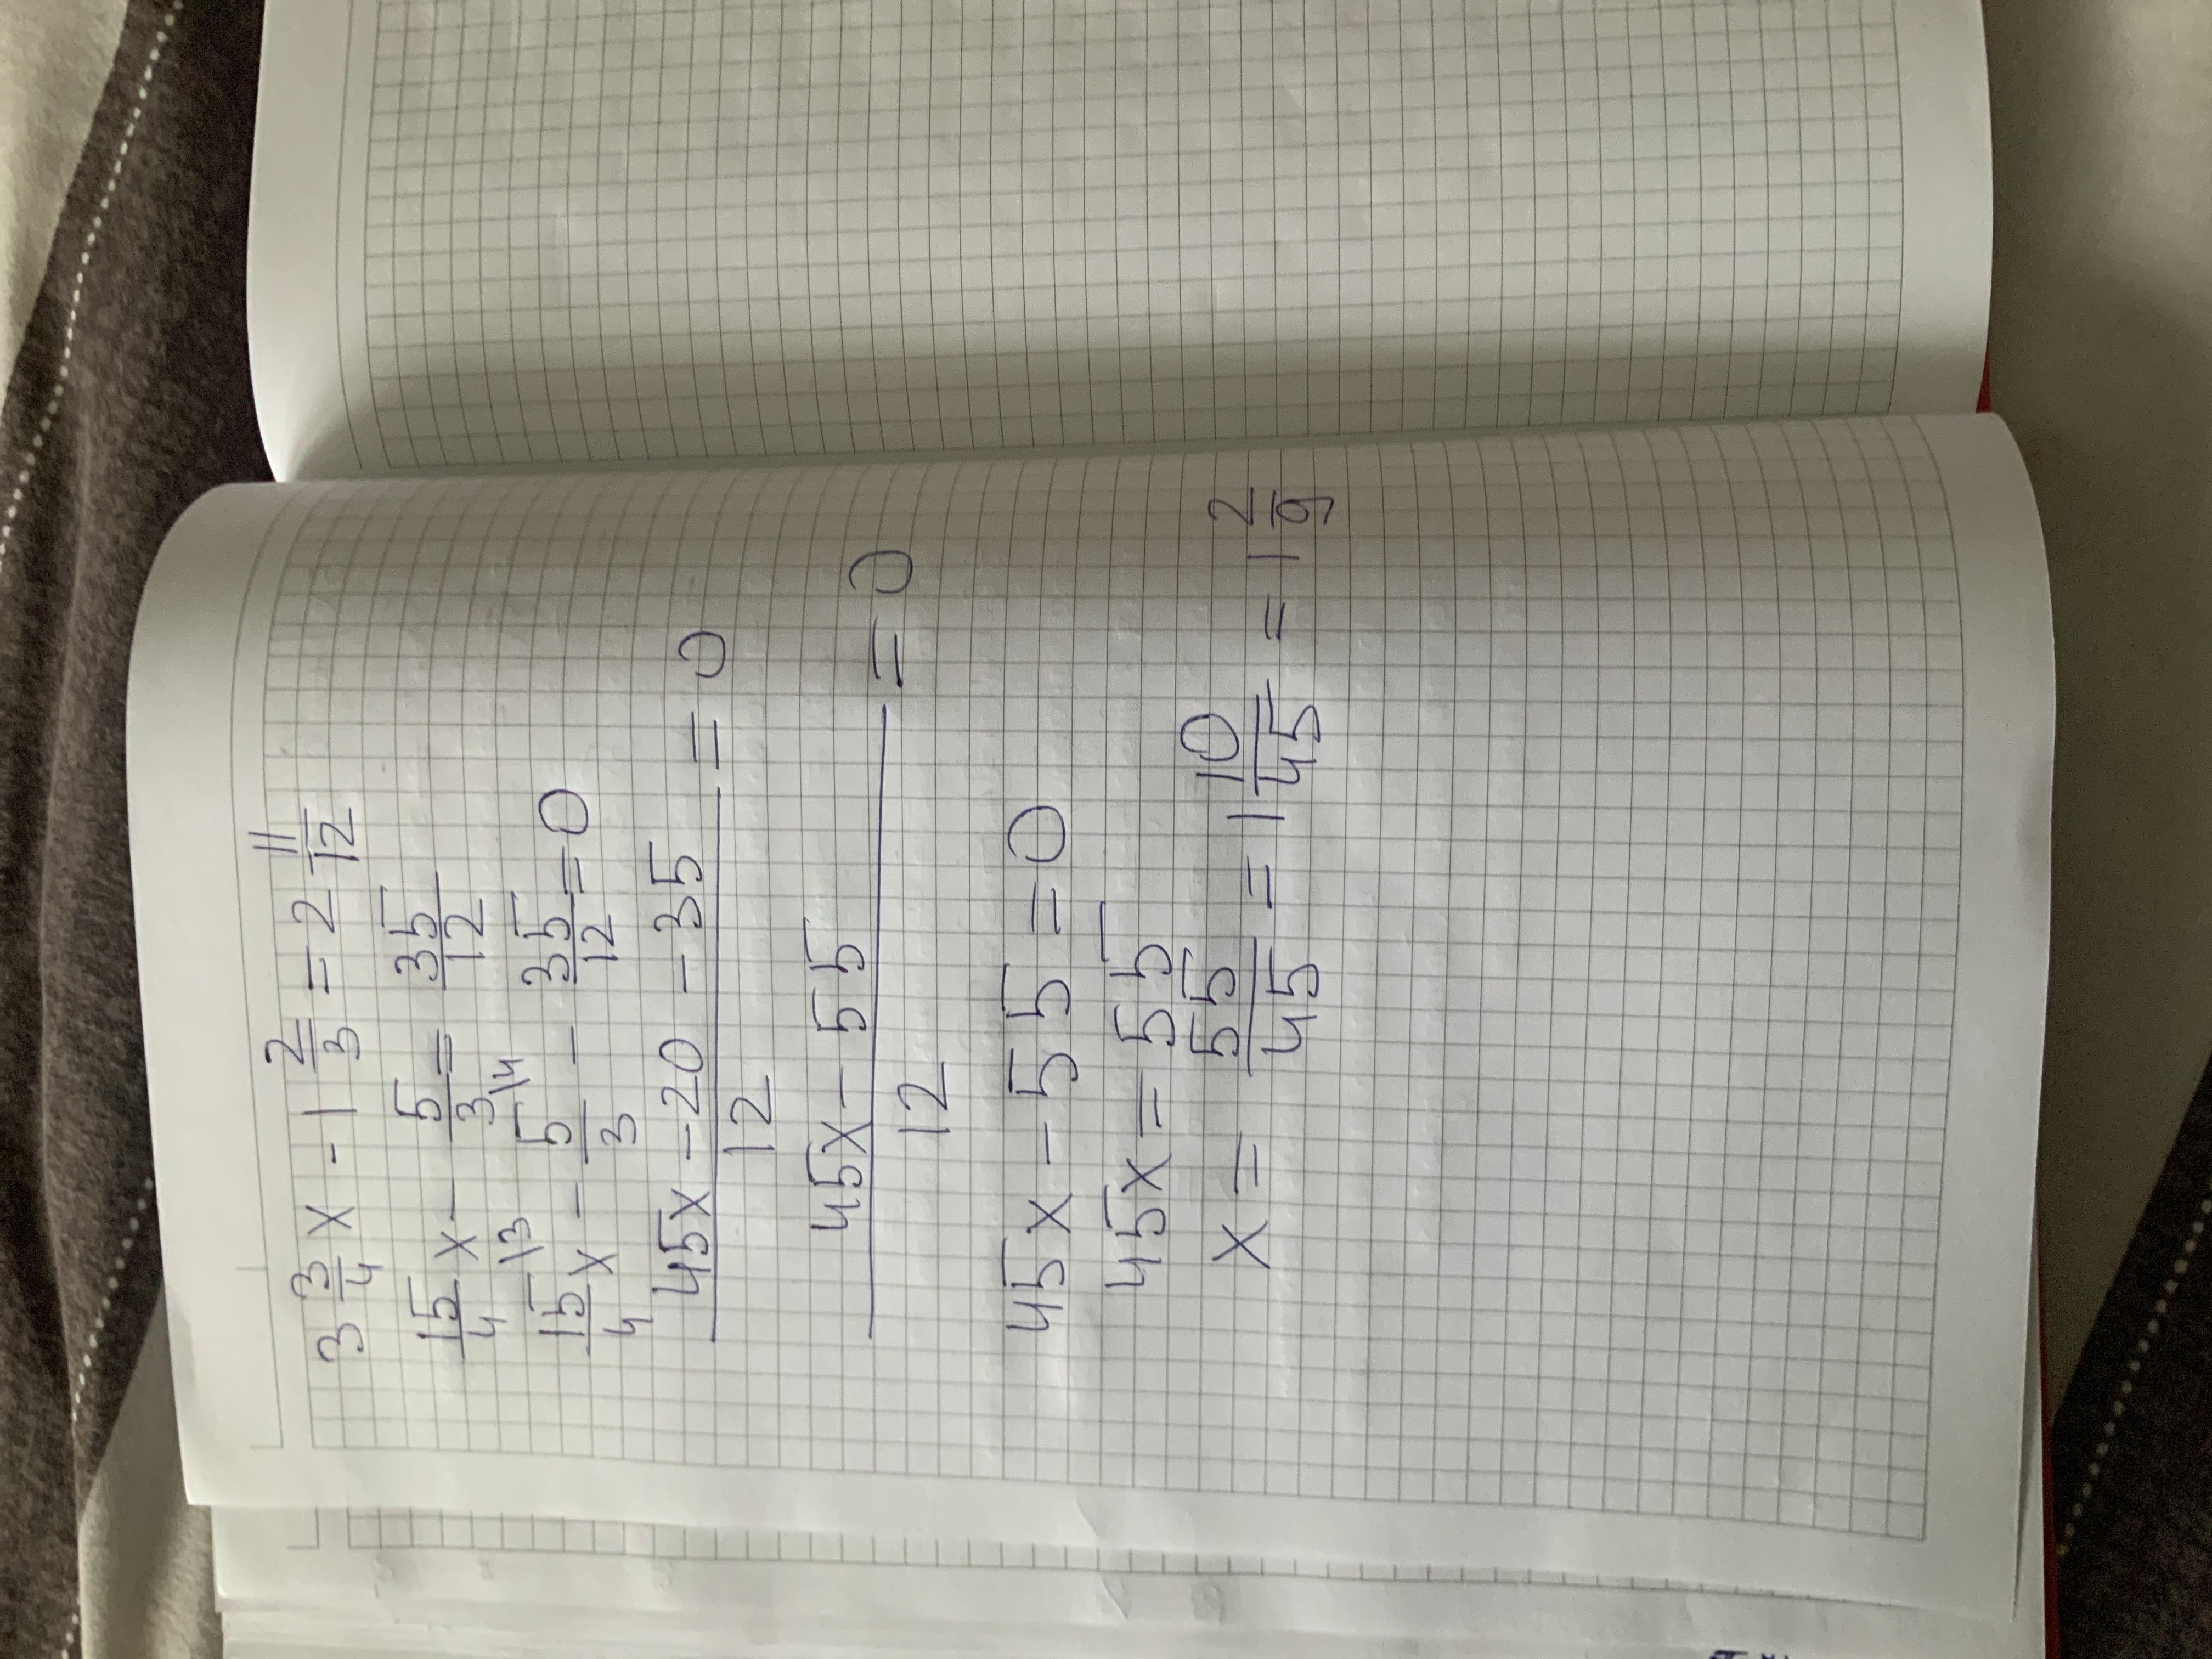 3 3/4 x - 1 2/3 = 2 11/12
15/4 x - 5/3 = 35/12
15/4 \3 x - 5/3 \4 - 35/12 = 0
(45x - 20 - 35)/12 = 0
(45x - 55)/12 = 0
45x - 55 = 0
45x = 55
x = 55/45 = 1 10/45 = 1 2/9